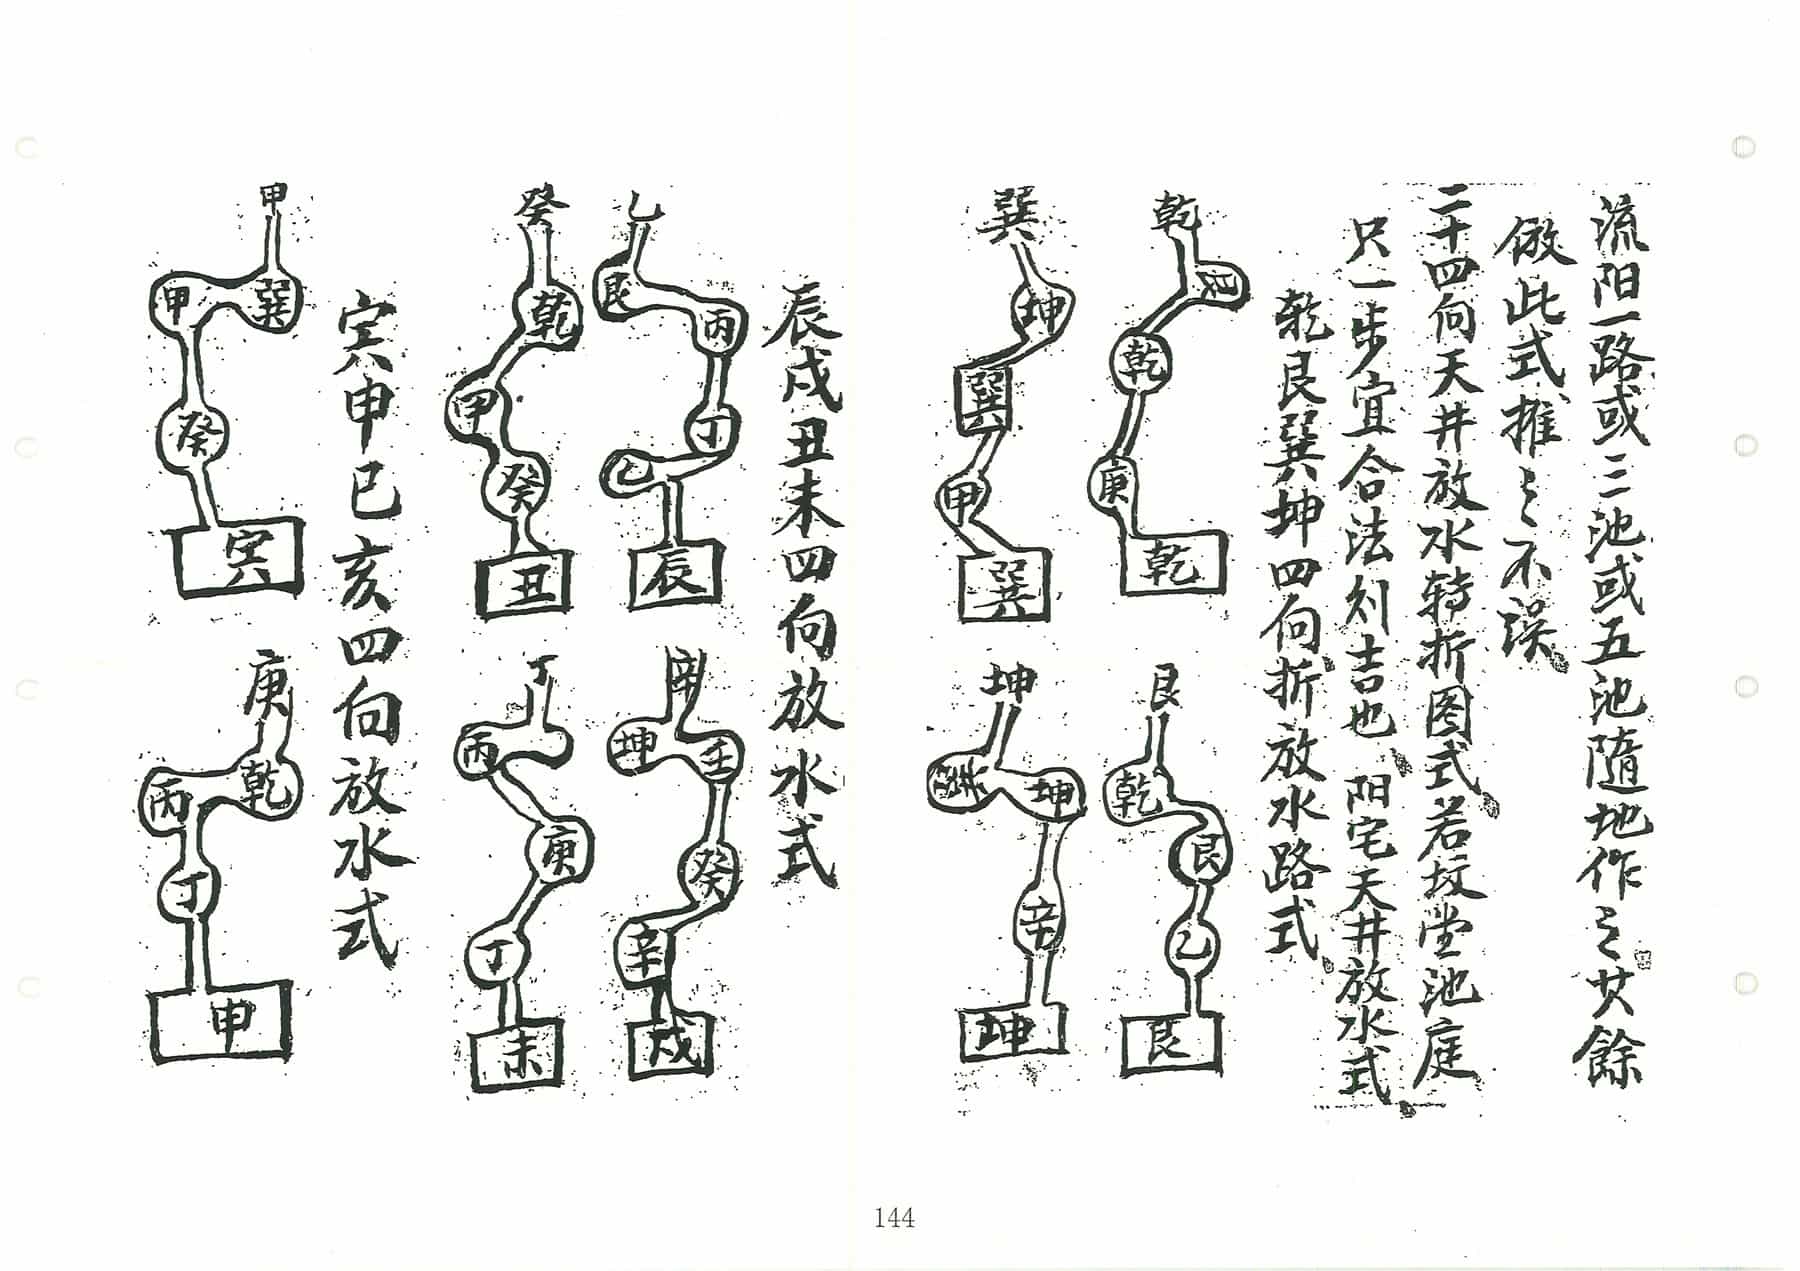 流阳一路或三池或五池随地作之其餘
倣此式推之不误
二十四向天井放水转折图式若坟堂池庭
只一步宜合法则吉也 阳宅天井放水式
乾艮巽坤四向折放水路式
乾
乾
庚
乾
艮
乾
艮
乙
艮
巽
坤
巽
甲
巽
坤
坤
辛
坤
辰戌丑未四向放水式
乙
艮
丙
丁
乙
辰
辛
坤
壬
癸
辛
戌
癸
乾
甲
癸
丑
丁
丙
庚
丁
未
寅申巳亥四向放水式
甲
巽
甲
癸
寅
庚
乾
丙
丁
申
144